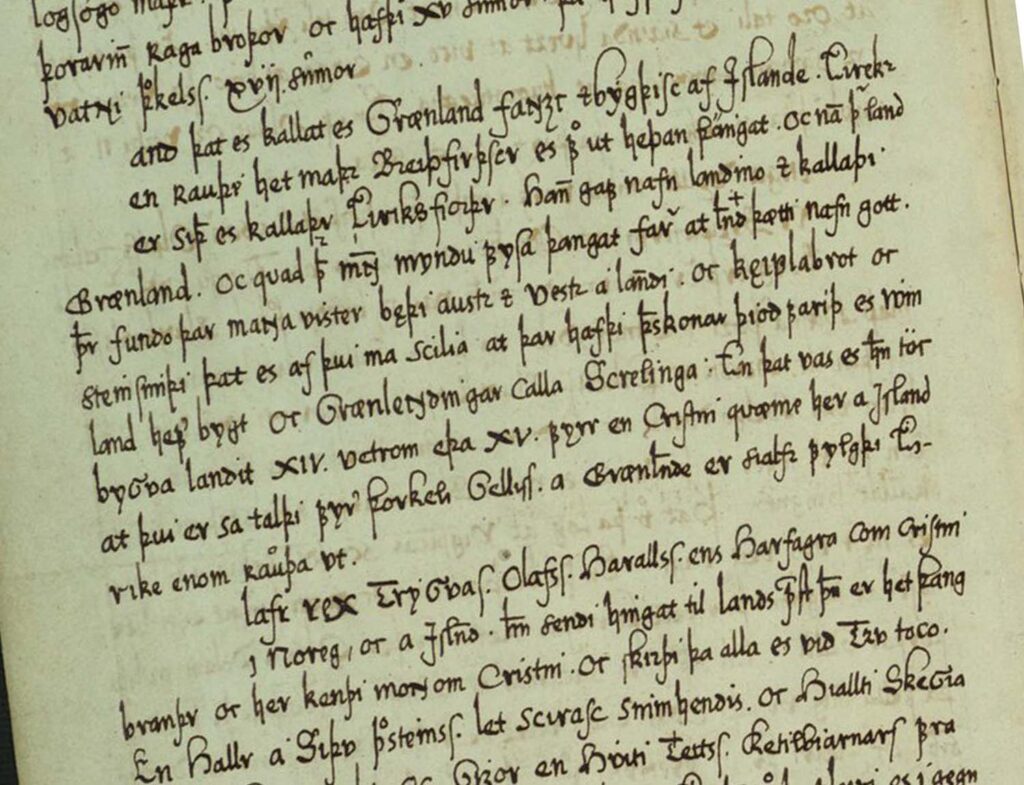 logsogo maþr
þorarin̄ raga broþor. oc hafþi XV sumor.
vatni þͦkels ſ. XVII. sumor
and þat es kallat es Grænland fanzc ⁊ bygþisc af Islande. Eirekr
en rauþi het maþr Breiþfirþscr es fͦ ut heþan þangat. oc nā þr̄ land
er siþ es kallaþr Eiriksfiorþr. han̄ gaf nafn landino ⁊ kallaþi
Grænland. oc quad þ̄ mɴ̄ myndu fysa þangat far̄ at lɴ̄d þætti nafn gott.
þr̄ fundo þar maɴa vister bęþi austr ⁊ vestr a landi. oc kęiplabrot oc
steinsmiþi þat es af þui ma scilia at þar hafþi þskonar þiod fariþ es vin
land hef̄ bygt oc Grænlendingar calla Screlinga. En þat vas es hn̄ tóc
bygva landit XIV. vetrom eþa XV. fyrr en Cristni quæme her a Island
at þui er sa talþi fyr̄ þorkeli Gellis ſ. a Grænlande er sialfr fylgþi Ei-
rike enom rauþa ut.
lafr rex Trygvas ſ. Olafs ſ. Haralls ſ. ens Harfagra com Cristni
i Noreg, oc a Islɴ̄d. hn̄ sendi hingat til lands pst þn̄ er het þang
branþr oc her kenþi moɴom Cristni. oc skirþi þa alla es vid Tru toco.
En Hallr a Siþu þͦsteins ſ. let scirasc snimhendis. oc Hiallti Skegia
Gizor en Hviti Teits ſ. Ketilbiarnars ſ fra
es i gegn